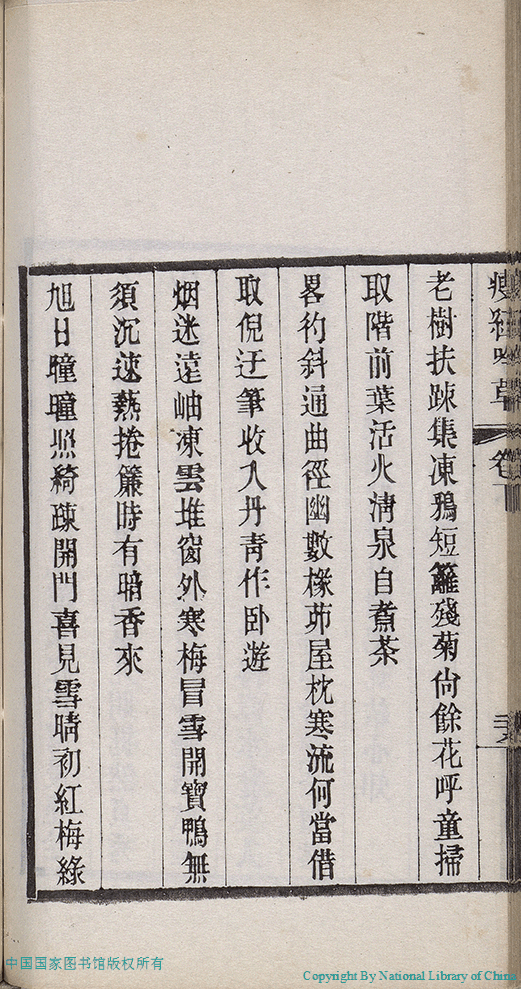 吟草
卷
老樹扶踈集凍鴉短籬殘菊尙餘花呼童掃
取階前葉活火淸泉自煮茶
畧彴斜通曲徑幽數椽茆屋枕寒流何當借
取倪迂筆收入丹靑作卧遊
烟迷遠岫凍雲堆窗外寒梅冒雪開寶鴨無
須沉速爇捲簾時有暗香來
旭日曈曈照綺疎開門喜見雪晴初紅梅綠
中国国家图书馆版权所有
Copyright By National Library of China